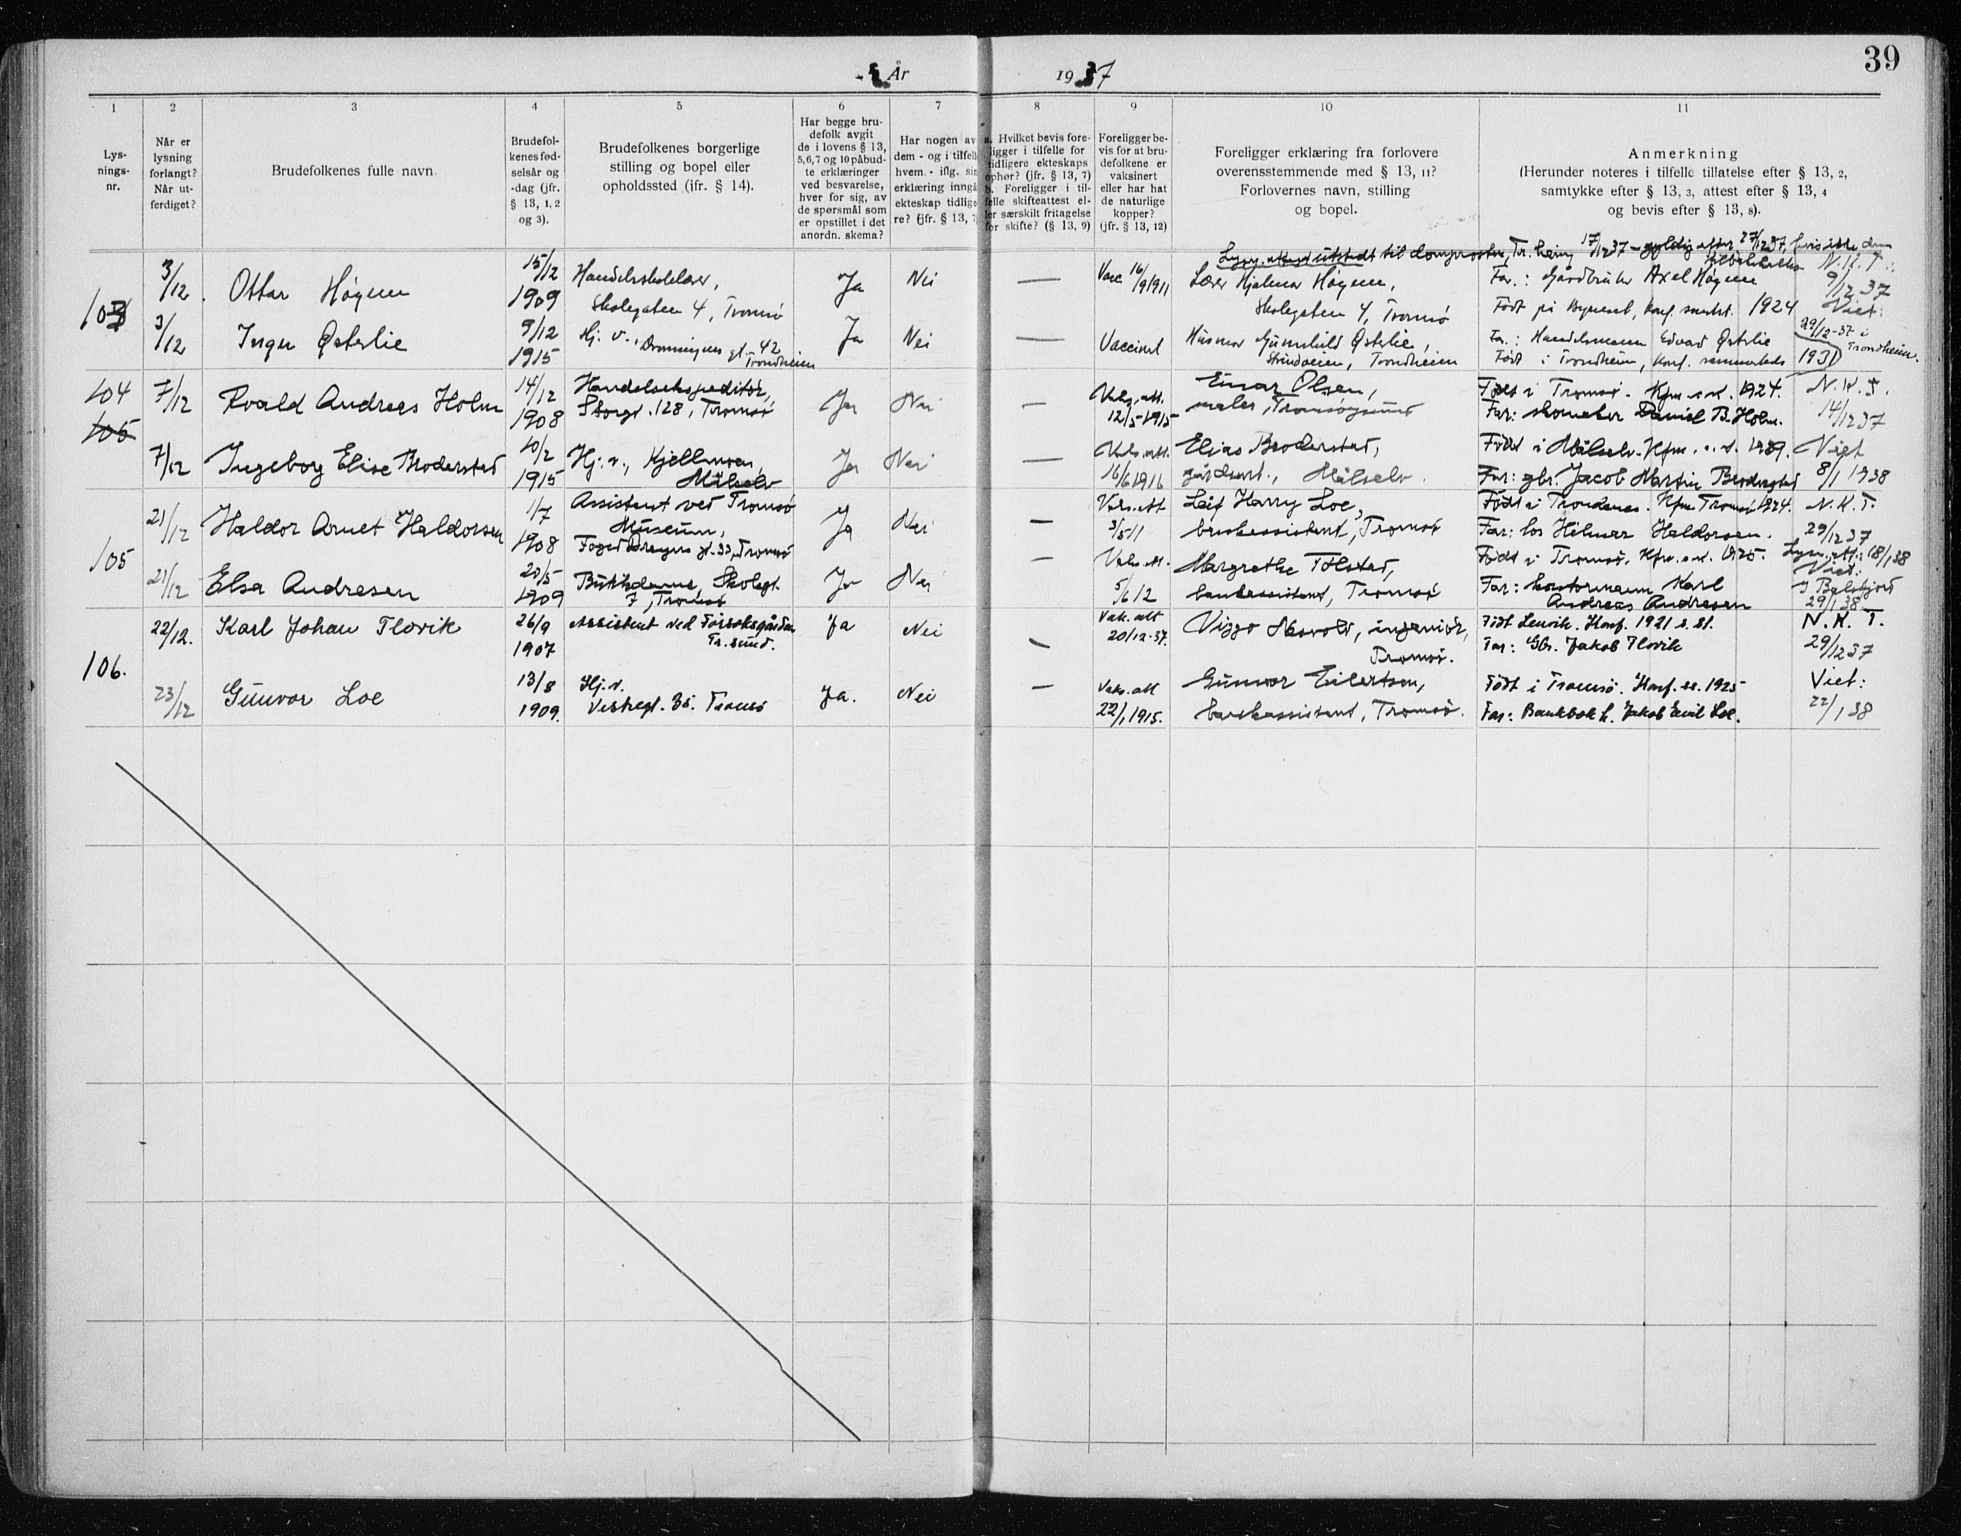 39
År 1937
1 2 3 4 5 6 7 8 9 10 11
Lys-
nings-
nr.
Når er
lysning
forlangt?
Når ut-
ferdiget?
Brudefolkenes fulle navn.
Brudefol-
kenes fød-
selsår og
-dag (jfr.
§ 13, 1, 2
og 3).
Brudefolkenes borgerlige
stilling og bopel eller
opholdssted (ifr. § 14).
Har begge bru-
defolk avgit
de i lovens § 13,
5, 6, 7 og 10 påbud-
te erklæringer
ved besvarelse,
hver for sig, av
de spørsmål som
er opstillet i det
anordn. skema?
Har nogen av
dem - og i tilfelle
hvem - iflg. sin
erklæring inngå
ekteskap tidlige-
re? (jfr. § 13, 7)
a. Hvilket bevis fore-
ligger i tilfelle for
tidligere ekteskaps
ophør? (jfr. § 13, 7)
b. Foreligger i til-
felle skifteattest el-
ler særskilt fritagelse
for skifte? (§ 13, 9)
Foreligger be-
vis for at bru-
defolkene er
vaksinert
eller har hat
de naturlige
kopper?
(jfr. § 13, 12)
Foreligger erklæring fra forlovere
overensstemmende med § 13, 11?
Forlovernes navn, stilling
og bopel.
Anmerkning
(Herunder noteres i tilfelle tillatelse efter § 13, 2,
samtykke efter § 13, 3, attest efter § 13, 4
og bevis efter § 13, 8).
103
3/12 Ottar Høgem 15/12 1909 Handelsskolelærer, Skolegaten 4, Tromsø Ja Nei — Vacc. 16/9 1911 Lærer Hjalmar Høgem, Skolegaten 4, Tromsø Far.: Gårdbruker Axel Høgem Født på Byneset, Konf. samst. 1924 N.K.T. 9/12 37 Viet:
3/12 Inger Østerlie 9/12 1915 Hj. v., Dronningens gt. 42 Trondheim Ja Nei — Vaccinert Husmor Gunnhild Østerlie, Strindveien, Trondheim Fa.: Handelsmann Edvard Østerlie Født i Trondheim, Konf. sammesteds 1931 29/12-37 i Trondheim.
104
105
7/12 Roald Andreas Holm 14/12 1908 Handelsekspeditør, Storgt. 128, Tromsø Ja Nei — Vaks. att. 12/5-1915 Einar Olsen, maler, Tromsøysund Født i Tromsø. Kfm. s. st. 1924. Far: skomaker Daniel B. Holm. N.K.T. 14/12 37
7/12 Ingeborg Elise Broderstad 10/2 1915 Hj. v., Kjellmoen, Målselv Ja Nei Vaks. att. 16/6 1916 Elias Broderstad, Målselv. Født i Målselv. Kfm. s. st. Far: gbr. Jacob Martin Broderstad Viet 8/1 1938
105
21/12 Haldor Arnet Haldorsen 1/7 1908 Assistent ved Tromsø Museum, Foged Dreyers gt. 33, Tromsø Ja Nei — Vaks. att 3/5-11 Leif Harry Loe, bankassistent, Tromsø Født i Trondenes. Kfm Tromsø 1924. Far: los Hilmar Haldorsen. N.K.T. 29/12 37
21/12 Elsa Andresen 20/5 1909 Butikkdame, Skolegt. 7, Tromsø Ja Nei — Vaks. att. 5/6 12 Margrethe Tolstad, bankassistent, Tromsø Født i Tromsø. Kfm. s. st. 1925. Far: kontormann Karl Andreas Andresen Lysn. att.: 18/1 38 Viet: i Balsfjord 29/1 38.
106.
22/12. Karl Johan Flovik 26/9 1907 Assistent ved Forsøksgården Tr. sund. Ja Nei — Vak. att 20/12-37. Viggo, ingeniør, Tromsø. Født Lenvik. Konf. 1921 s. st. Far: Gbr. Jakob Flovik N.K.T. 29/12 37
23/12 Gunvor Loe 13/8 1909. Hj. v. Vestregt. 35. Tromsø Ja. Nei — Vaks. att 22/1 1915. Gunvor Eilertsen, bankassistent, Tromsø. Født i Tromsø. Konf. ss. 1925 Far: Bankbokh. Jakob Emil Loe. Viet: 22/1 38